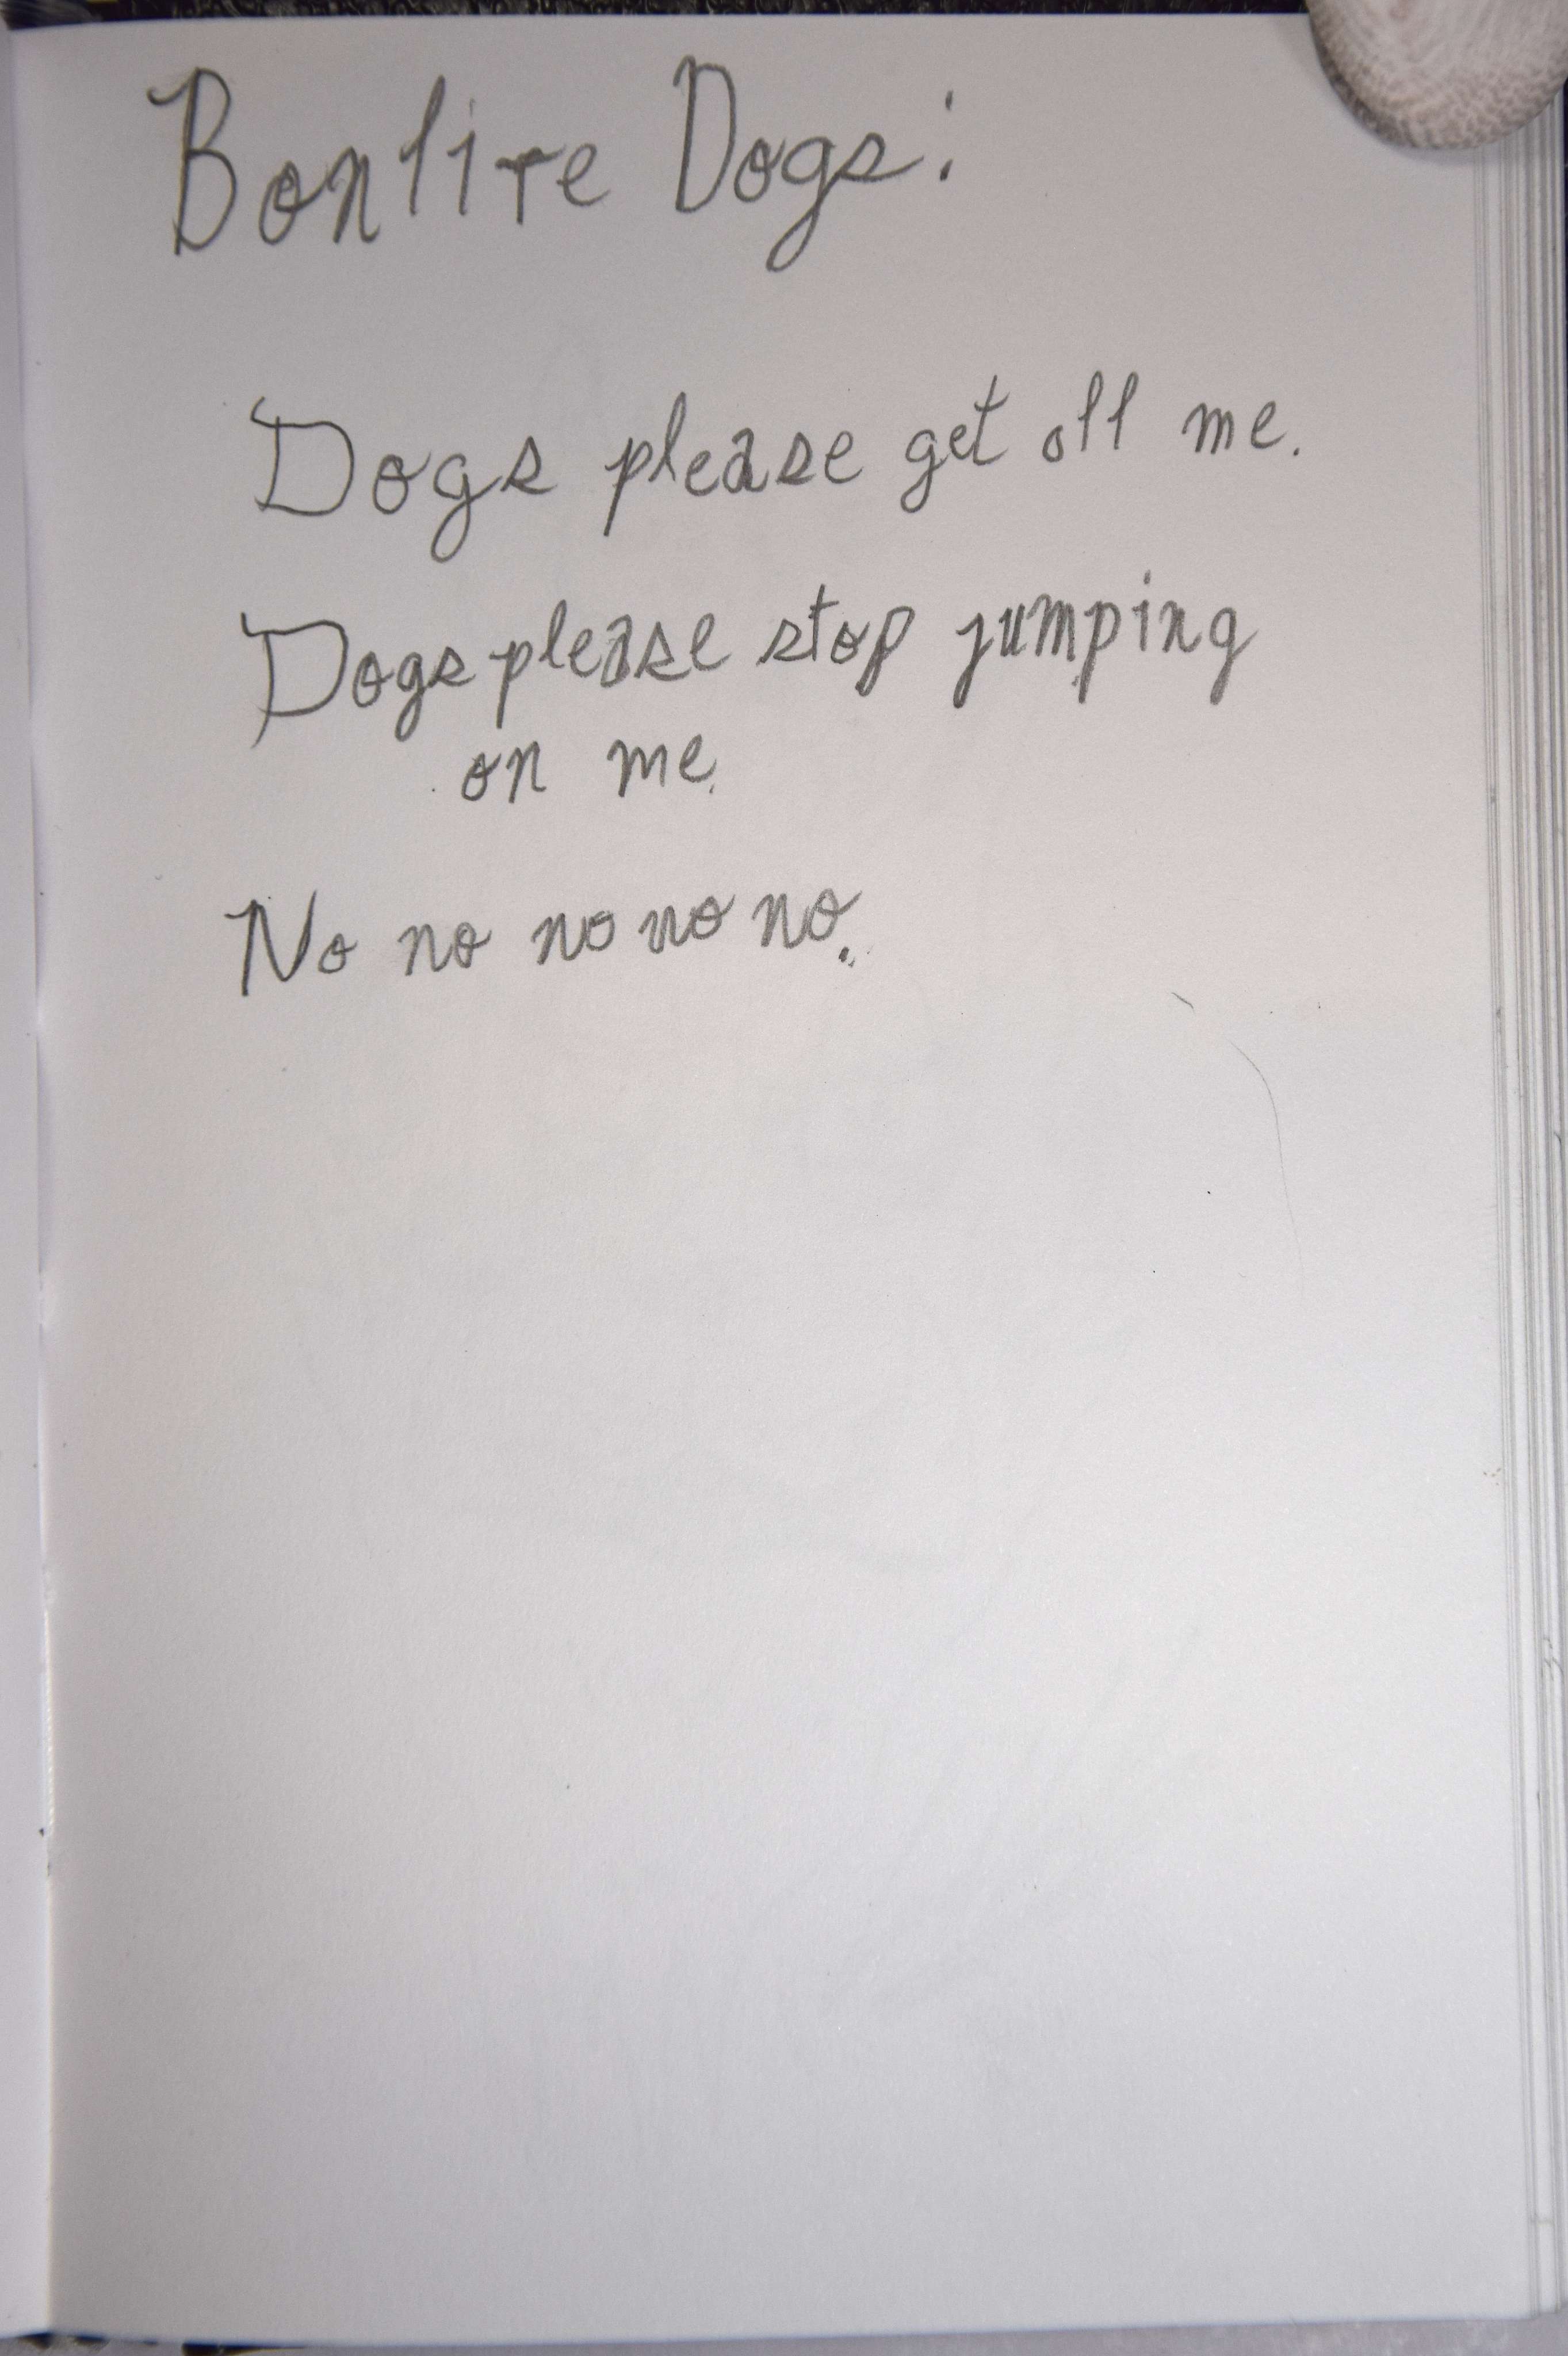 Bonfire Dogs:
Dogs please get off me.
Dogs please stop jumping
on me.
No no no no no.